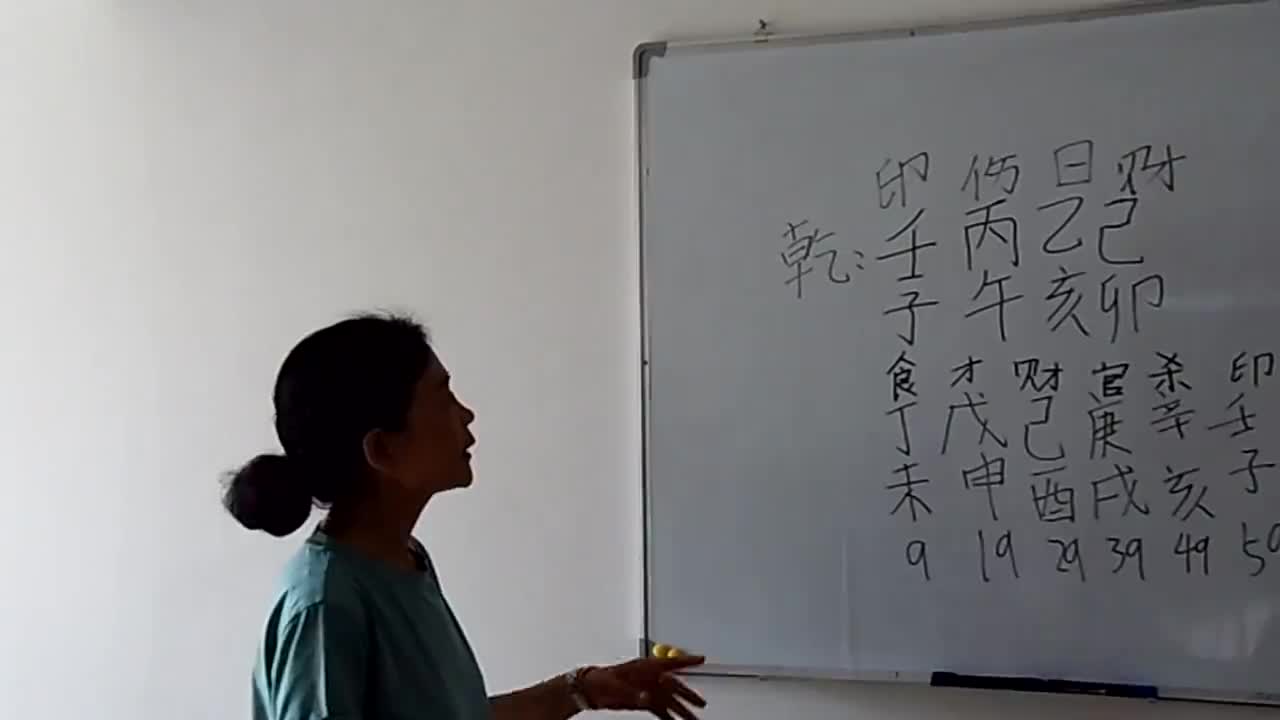 印 伤 日 财
乾: 壬 丙 乙 己
子 午 亥 卯
食 才 财 官 杀 印
丁 戊 己 庚 辛 壬
未 申 酉 戌 亥 子
9 19 29 39 49 59